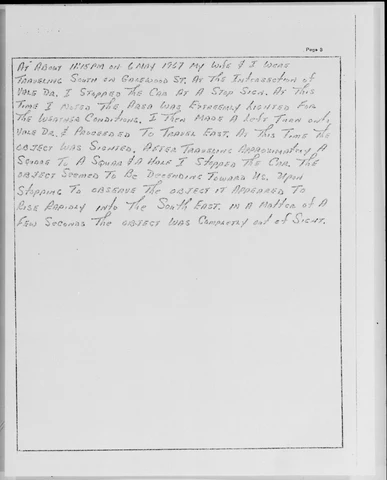 Page 5
AT ABOUT 11:15PM ON 6 MAY 1967 MY WIFE & I WERE
TRAVELING SOUTH ON ST. AT THE INTERSECTION OF
DR. I STOPPED THE CAR AT A STOP SIGN. AT THIS
TIME I NOTED THE AREA WAS EXTREMELY LIGHTED FOR
THE WEATHER CONDITIONS. I THEN MADE A LEFT TURN ONTO
DR. & PROCEEDED TO TRAVEL EAST. AT THIS TIME THE
OBJECT WAS SIGHTED. AFTER TRAVELING APPROXIMATELY A
SQUARE TO A SQUARE & A HALF I STOPPED THE CAR. THE
OBJECT SEEMED TO BE DECENDING TOWARD US. UPON
STOPPING TO OBSERVE THE OBJECT IT APPEARED TO
RISE RAPIDLY INTO THE SOUTH EAST. IN A MATTER OF A
FEW SECONDS THE OBJECT WAS COMPLETLY OUT OF SIGHT.